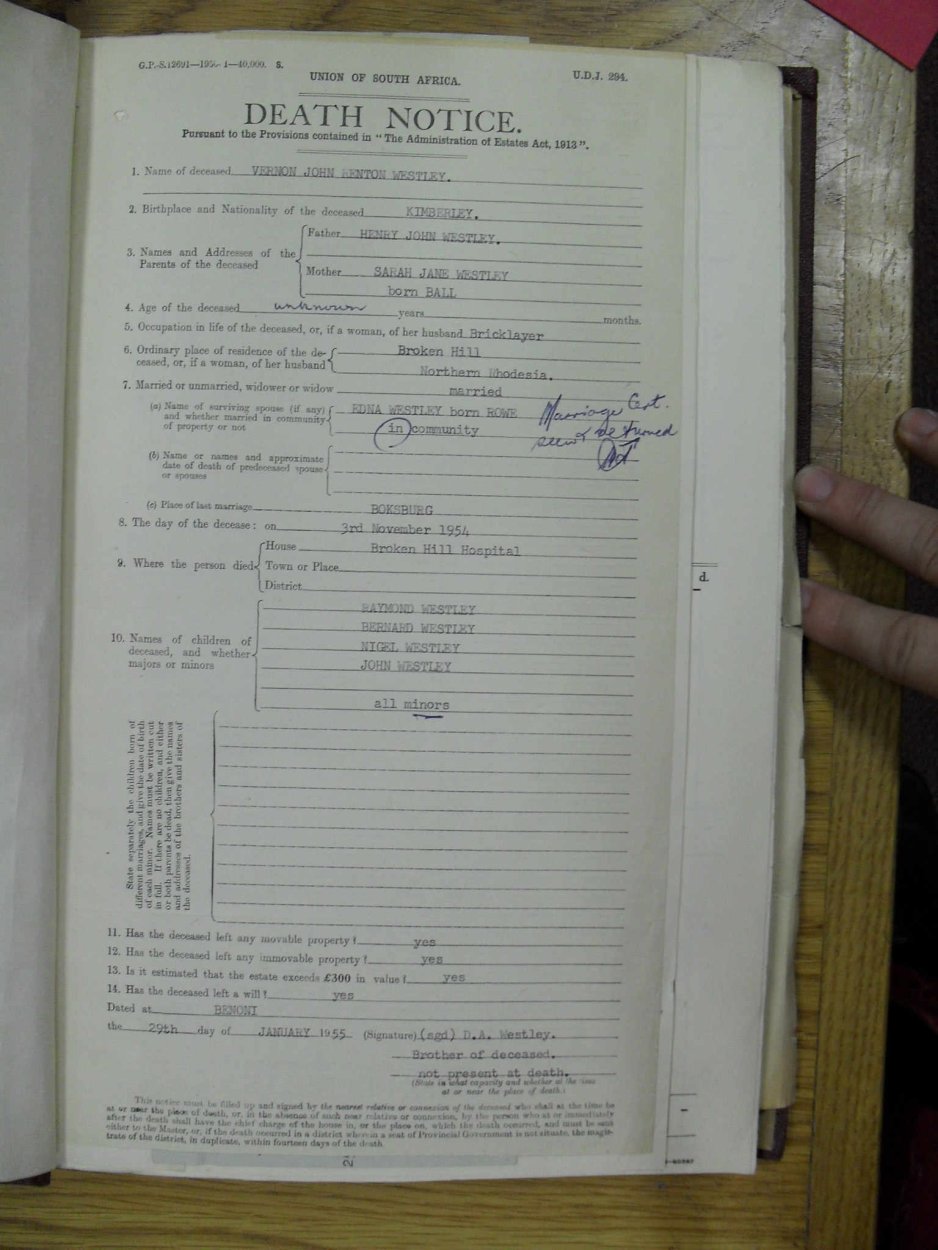 G.P.-S.12691—195 1—40,000. S.
U.D.J. 294.
UNION OF SOUTH AFRICA.
DEATH NOTICE.
Pursuant to the Provisions contained in "The Administration of Estates Act, 1913".
1. Name of deceased VERNON JOHN RENTON WESTLEY.
2. Birthplace and Nationality of the deceased KIMBERLEY.
3. Names and Addresses of the Parents of the deceased
Father HENRY JOHN WESTLEY.
Mother SARAH JANE WESTLEY
born BALL
4. Age of the deceased unknown years months.
5. Occupation in life of the deceased, or, if a woman, of her husband Bricklayer
6. Ordinary place of residence of the de- Broken Hill
ceased, or, if a woman, of her husband Northern Rhodesia.
7. Married or unmarried, widower or widow married
(a) Name of surviving spouse (if any) EDNA WESTLEY born ROWE
and whether married in community in community
of property or not
Marriage Cert.
seen & returned
(b) Name or names and approximate
date of death of predeceased spouse
or spouses
(c) Place of last marriage BOKSBURG
8. The day of the decease: on 3rd November 1954
9. Where the person died
House Broken Hill Hospital
Town or Place
District
10. Names of children of
deceased, and whether
majors or minors
RAYMOND WESTLEY
BERNARD WESTLEY
NIGEL WESTLEY
JOHN WESTLEY
all minors
State separately the children born of
different marriages, and give the date of birth
of each minor. Names must be written out
in full. If there are no children, and either
or both parents be dead, then give the names
and addresses of the brothers and sisters of
the deceased.
11. Has the deceased left any movable property? yes
12. Has the deceased left any immovable property? yes
13. Is it estimated that the estate exceeds £300 in value? yes
14. Has the deceased left a will? yes
Dated at BENONI
the 29th day of JANUARY 1955 (Signature) (sgd) D.A. Westley.
Brother of deceased.
not present at death.
(State in what capacity and whether at the time
at or near the place of death.)
This notice must be filled up and signed by the nearest relative or connection of the deceased who shall at the time be
at or near the place of death, or, in the absence of such near relative or connection, by the person who at or immediately
after the death shall have the chief charge of the house in, or the place on, which the death occurred, and must be sent
either to the Master, or, if the death occurred in a district wherein a seat of Provincial Government is not situate, the magis-
trate of the district, in duplicate, within fourteen days of the death.
d.